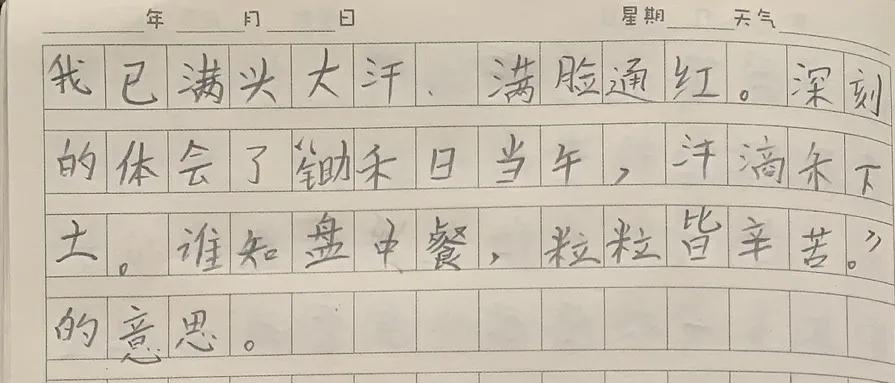 年 月 日 星期 天气
我已满头大汗、满脸通红。深刻
的体会了“锄禾日当午，汗滴禾下
土。谁知盘中餐，粒粒皆辛苦。”
的意思。